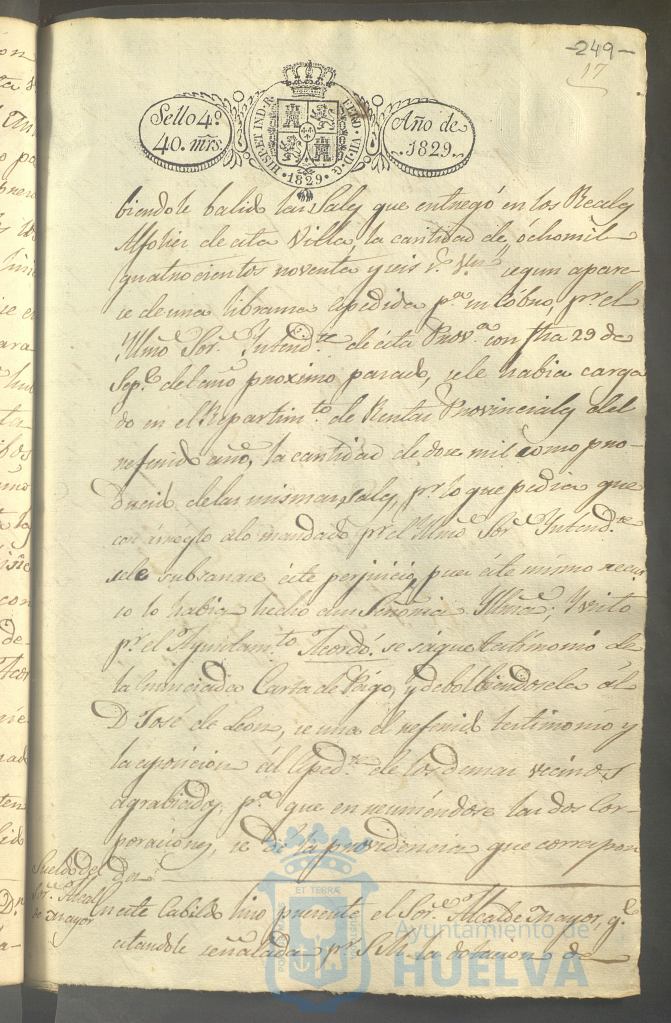 -249-
17
Sello 4º
40. mrs.
HISP. ET IND. R. FERD. VII. D. G.
1829.
Año de
1829.
biendole balido las Sales que entregó en los Reales
Alfolies de esta Villa, la cantidad de ôchomil
quatrocientos noventa y seis rˢ. vⁿ. segun apare-
ce de una libranza espedida pª. su cobro, pr. el
Yllmo. Sor. Yntendte. de ésta Provª. con fha 29 de
Sepe. del año proximo pasado, se le habia carga
do en el Repartimto. de Rentas Provinciales del
referido año, la cantidad de doce mil como pro-
ducido de las mismas sales, pr. lo que pedia que
con arreglo alo mandado pr. el Yllmo. Sor. Yntendte.
se le subsanase éste perjuicio, pues éste mismo recur
so lo habia hecho a su Señoria Yllma.; Y visto
pr. el Ayuntamto. Acordó: se saque testimonio de
la enunciada Carta de Pago, y debolbiendosela ál
D. José de Leon, se una el referido testimonio y
la oposicion ál Espedte. de los demas vecinos
agrabiados pª. que en reuniendose las dos Cor-
poraciones, se dé la providencia que correspon
der.
Sueldo del
Sor. Alcal
de mayor
En este Cabildo hizo presente el Sor. Alcalde mayor, qe.
estandole señalada pr. S.M. la dotacion de
ET TERRÆ
Ayuntamiento de
HUELVA